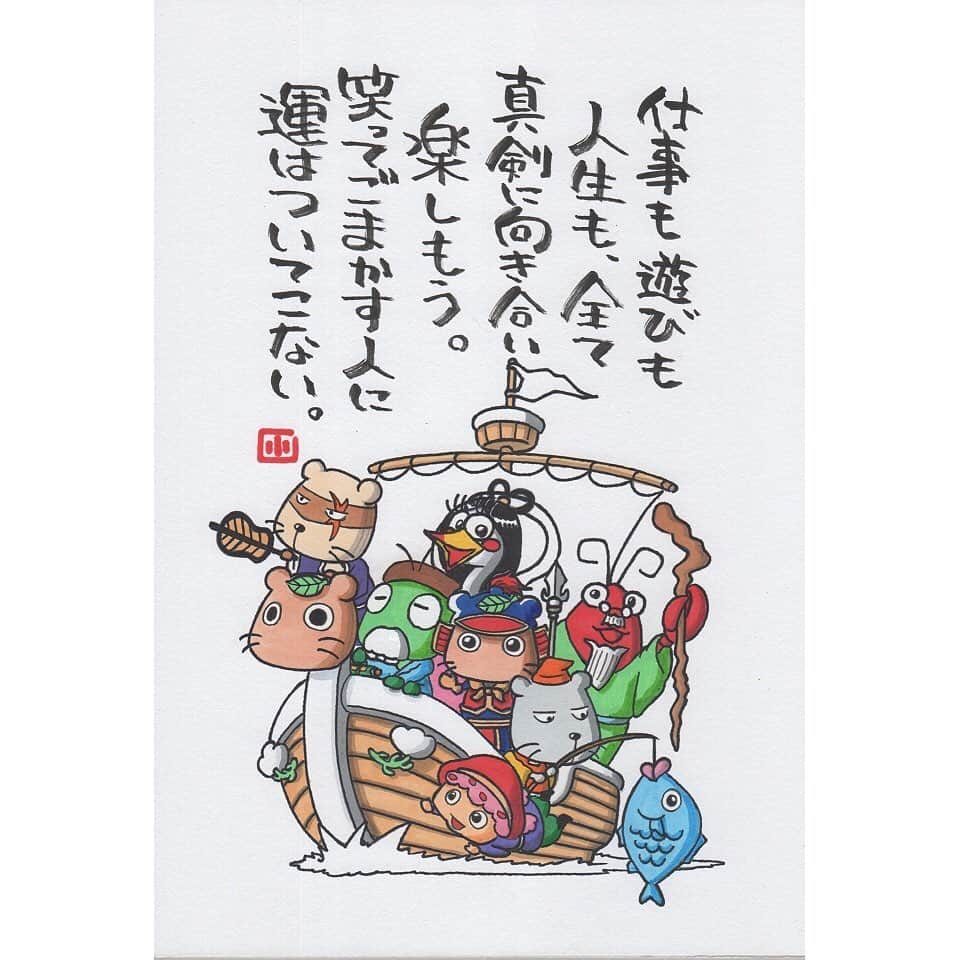 仕事も遊びも
人生も、全て
真剣に向き合い
楽しもう。
笑ってごまかす人に
運はついてこない。